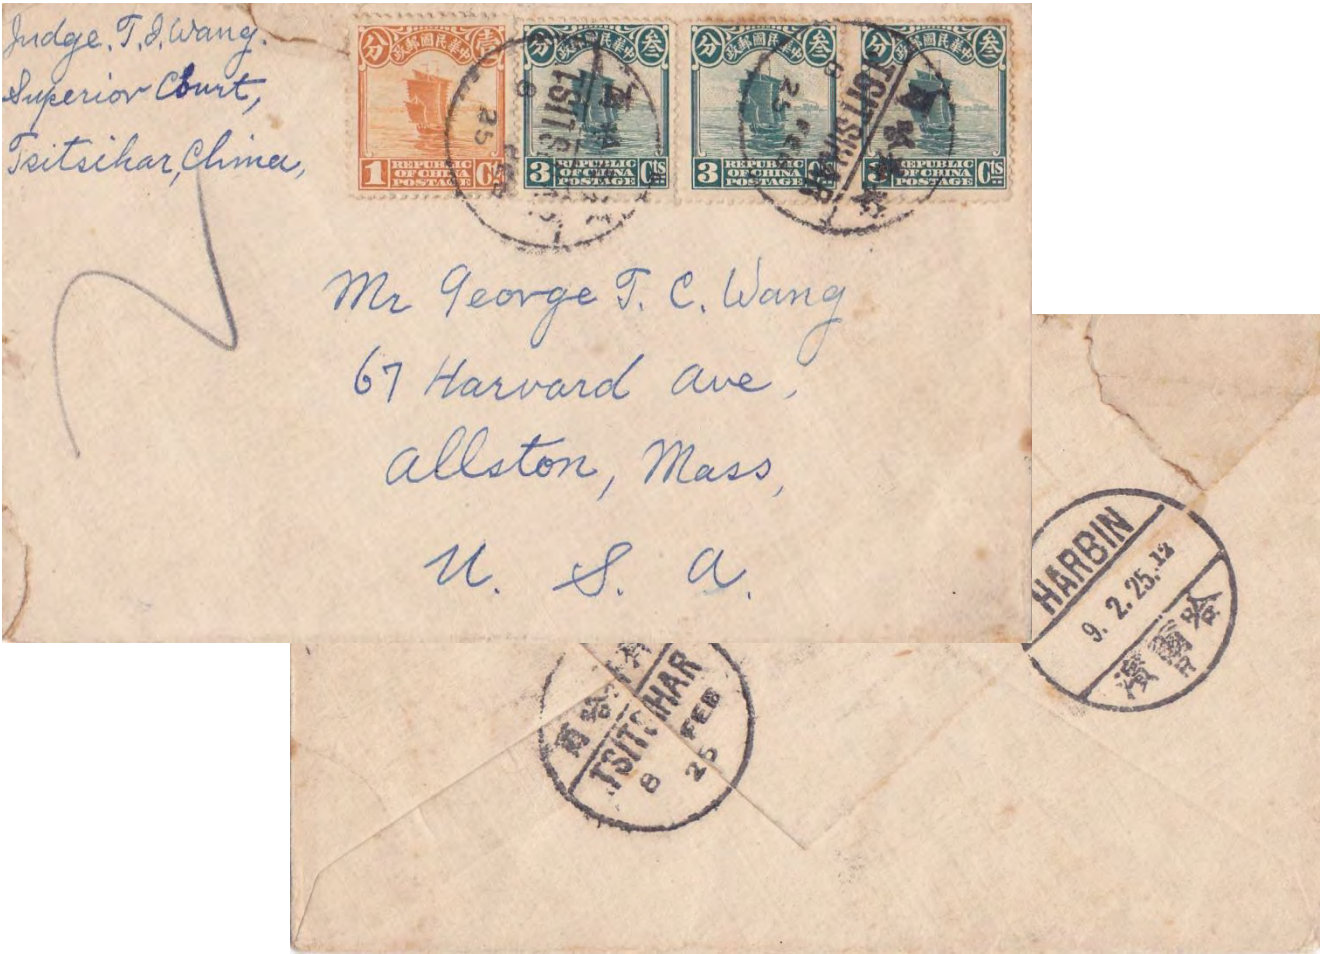 Judge. T. I. Wang.
Superior Court,
Tsitsihar, China,
分 中華民國郵政 壹
1 REPUBLIC OF CHINA POSTAGE
分 中華民國郵政 叁
3 REPUBLIC OF CHINA POSTAGE Cts
分 中華民國郵政 叁
3 REPUBLIC OF CHINA POSTAGE
分 中華民國郵政 叁
REPUBLIC OF CHINA POSTAGE Cts
8
25
TSITSIHAR
8
25 FEB
Mr George T. C. Wang
67 Harvard Ave,
Allston, Mass,
U. S. A.
HARBIN
9.2.25.12
哈爾濱
TSITSIHAR
8 FEB
25